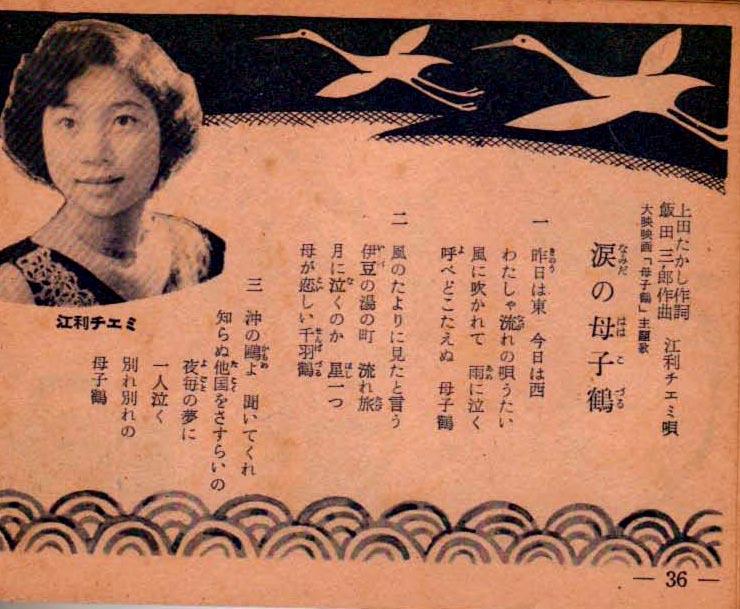 上田たかし作詞
飯田三郎作曲　江利チエミ唄
大映映画「母子鶴」主題歌
涙の母子鶴
一　昨日は東　今日は西
わたしゃ流れの唄うたい
風に吹かれて　雨に泣く
呼べどこたえぬ　母子鶴
二　風のたよりに見たと言う
伊豆の湯の町　流れ旅
月に泣くのか　星一つ
母が恋しい千羽鶴
三　沖の鷗よ　聞いてくれ
知らぬ他国をさすらいの
夜毎の夢に
一人泣く
別れ別れの
母子鶴
江利チエミ
— 36 —